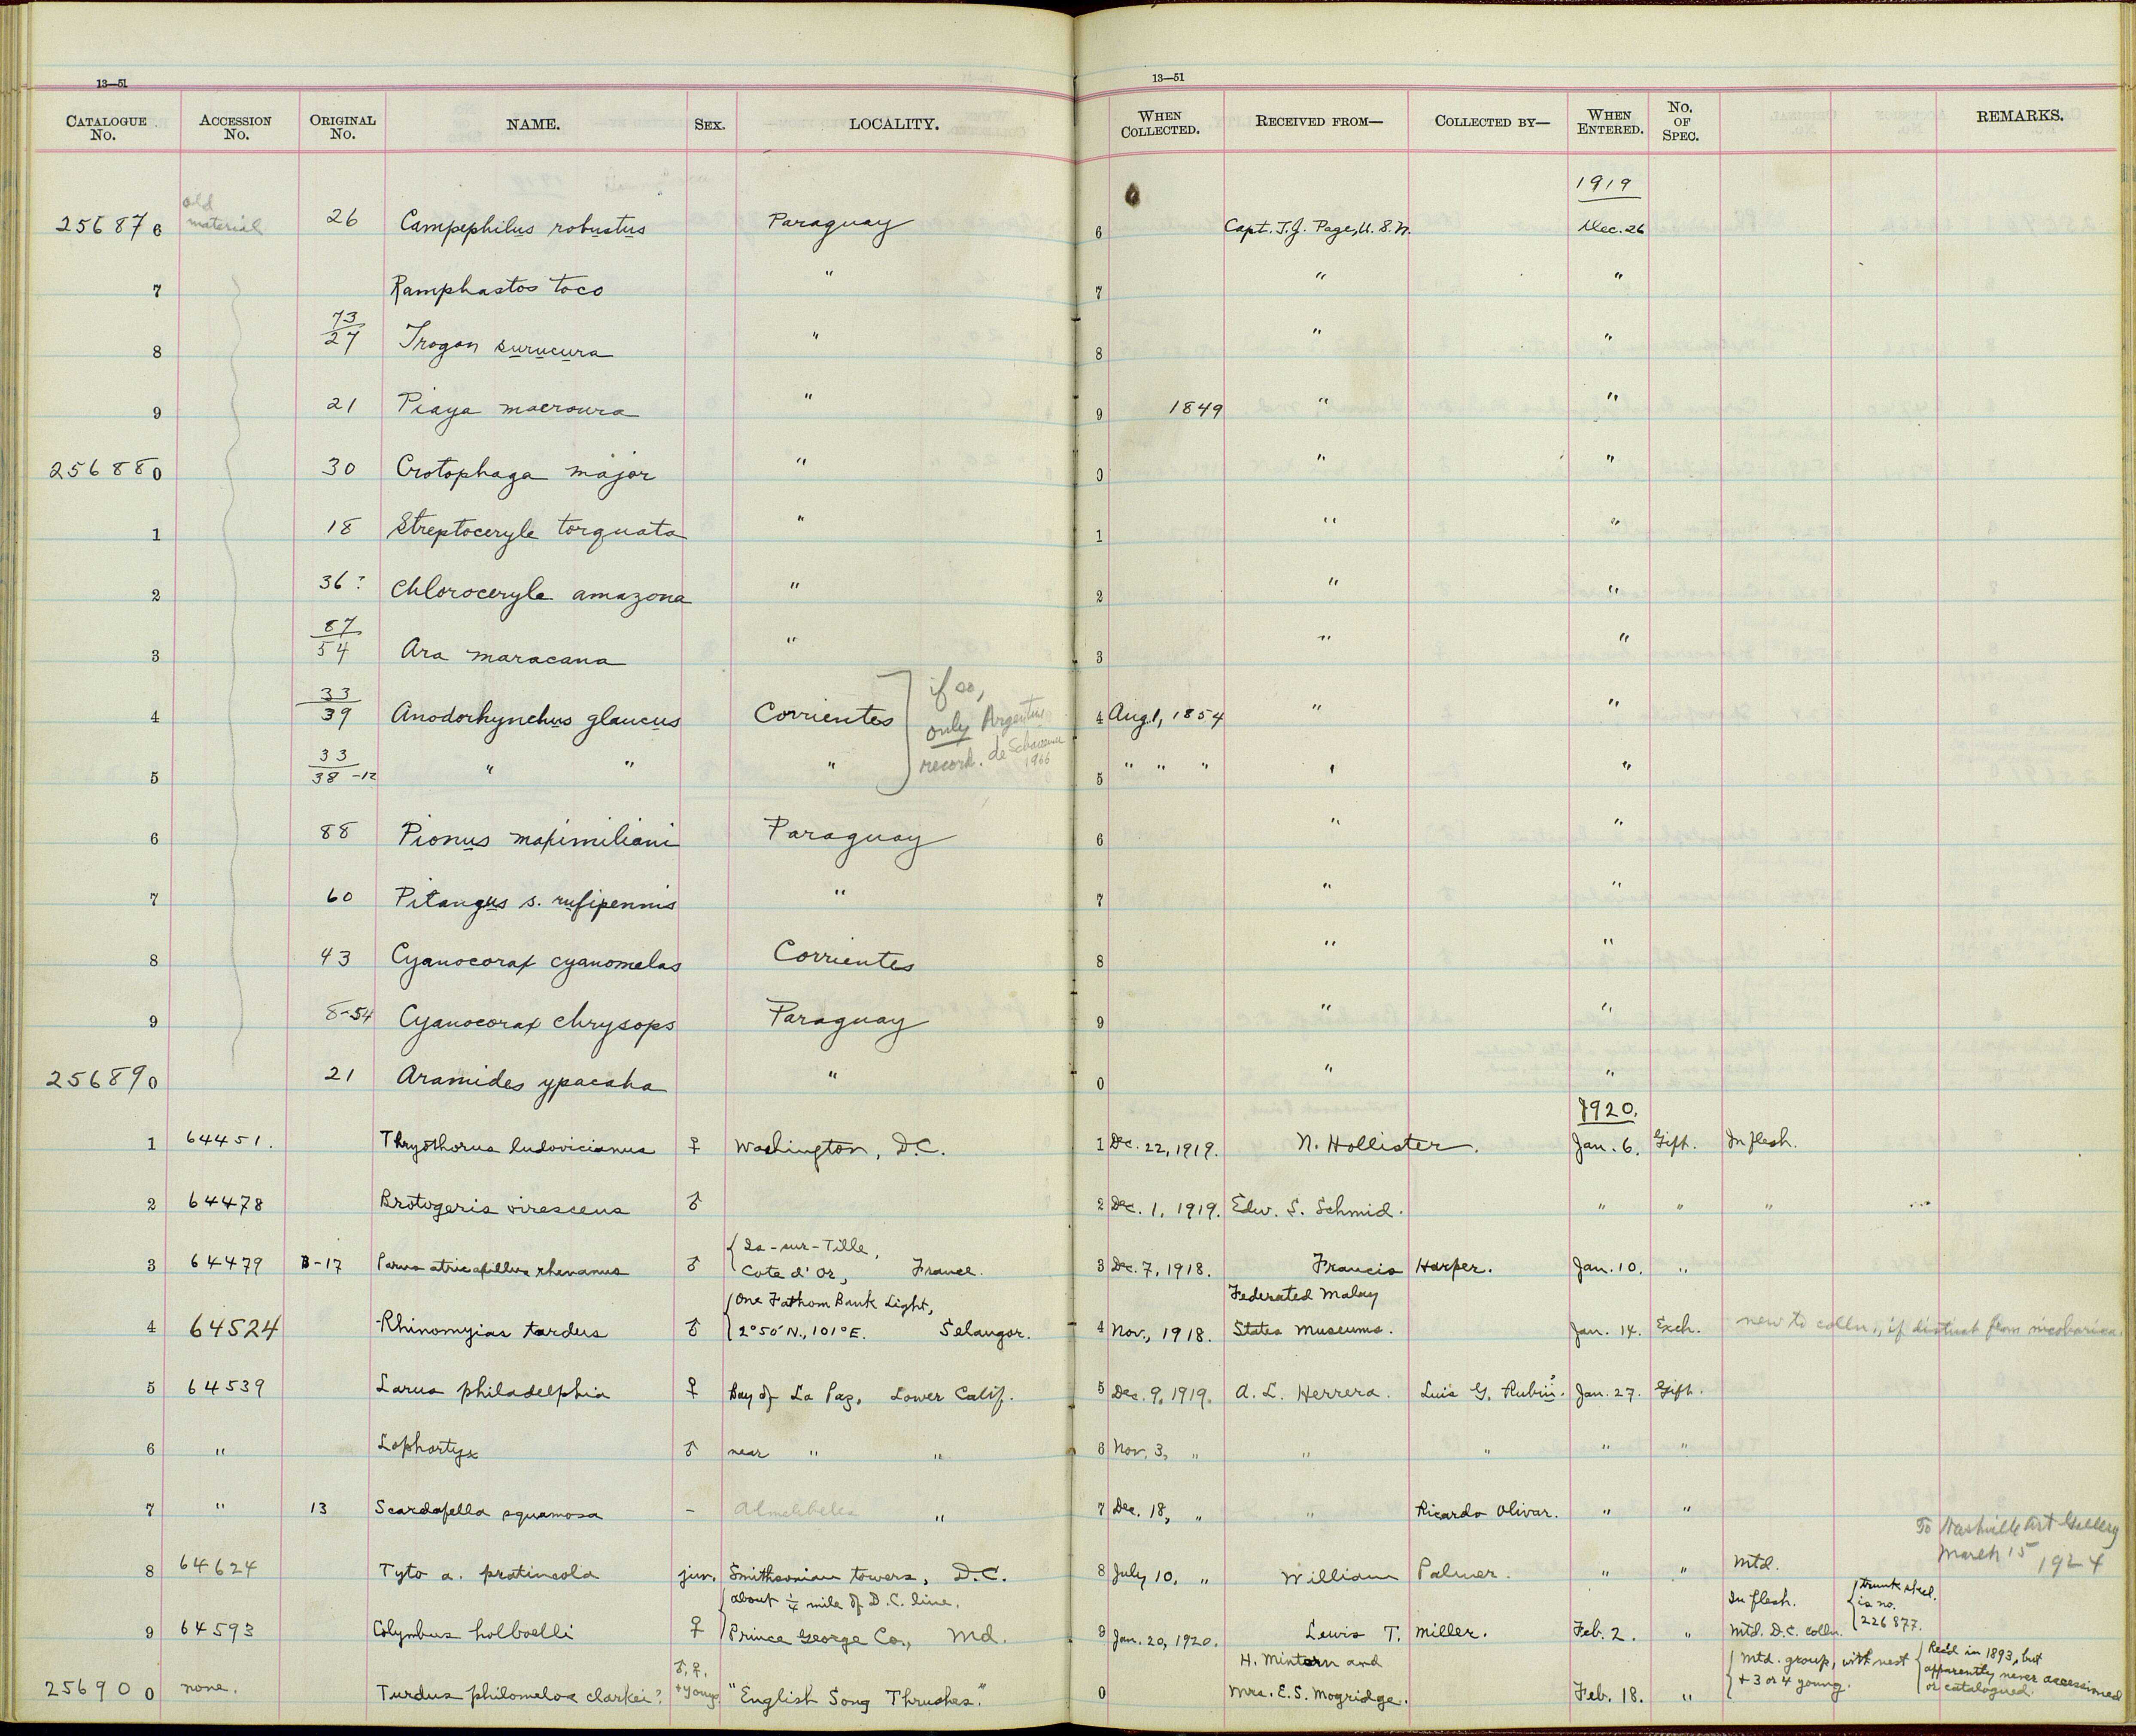 13—51
13—51
CATALOGUE No. ACCESSION No. ORIGINAL No. NAME. SEX. LOCALITY. WHEN COLLECTED. RECEIVED FROM— COLLECTED BY— WHEN ENTERED. No. OF SPEC. REMARKS.
1919
256876 old material 26 Campephilus robustus Paraguay 6 Capt. T.J. Page, U.S.N. Dec. 26
7 Ramphastos toco " 7 " "
8 73/27 Trogon surucura " 8 " "
9 21 Piaya macroura " 9 1849 " "
256880 30 Crotophaga major " 0 " "
1 18 Streptoceryle torquata " 1 " "
2 36? Chloroceryle amazona " 2 " "
3 87/54 Ara maracana " 3 " "
4 33/39 Anodorhynchus glaucus Corrientes } if so, only Argentine record. de Schauensee 1966 4 Aug. 1, 1854 " "
5 33/38-12 " " " 5 " " " " "
6 88 Pionus maximiliani Paraguay 6 " "
7 60 Pitangus s. rufipennis " 7 " "
8 43 Cyanocorax cyanomelas Corrientes 8 " "
9 8-54 Cyanocorax chrysops Paraguay 9 " "
256890 21 Aramides ypacaha " 0 " "
1920.
1 64451. Thryothorus ludovicianus ♀ Washington, D.C. 1 Dec. 22, 1919. N. Hollister. Jan. 6. Gift. In flesh.
2 64478 Brotogeris virescens ♂ 2 Dec. 1, 1919. Edw. S. Schmid. " " "
3 64479 B-17 Parus atricapillus rhenanus ♂ { Is-sur-Tille, Cote d'Or, France. 3 Dec. 7, 1918. Francis Harper. Jan. 10. "
4 64524 Rhinomyias tardus ♂ { One Fathom Bank Light, 2°50' N., 101° E. Selangor. 4 Nov., 1918. Federated Malay States Museums. Jan. 14. Exch. new to colln., if distinct from nicobarica.
5 64539 Larus philadelphia ♀ Bay of La Paz, Lower Calif. 5 Dec. 9, 1919. A. L. Herrera. Luis G. Rubin. Jan. 27. Gift.
6 " Lophortyx ♂ near " " 6 Nov. 3, " " " " "
7 " 13 Scardafella squamosa - " 7 Dec. 18, " " Ricardo Olivar. " "
8 64624 Tyto a. pratincola juv. Smithsonian towers, D.C. 8 July 10, " William Palmer. " " Mtd. To Nashville Art Gallery March 15 1924
9 64593 Colymbus holboelli ♀ { about ¼ mile of D.C. line, Prince George Co., Md. 9 Jan. 20, 1920. Lewis T. Miller. Feb. 2. " In flesh. Mtd. D.C. colln. { trunk skel. is no. 226877.
256900 none. Turdus philomelos clarkei? ♂, ♀, + young "English Song Thrushes." 0 H. Mintorn and Mrs. E. S. Mogridge. Feb. 18. " { Mtd. group, with nest + 3 or 4 young. { Rec'd in 1893, but apparently never accessioned or catalogued.